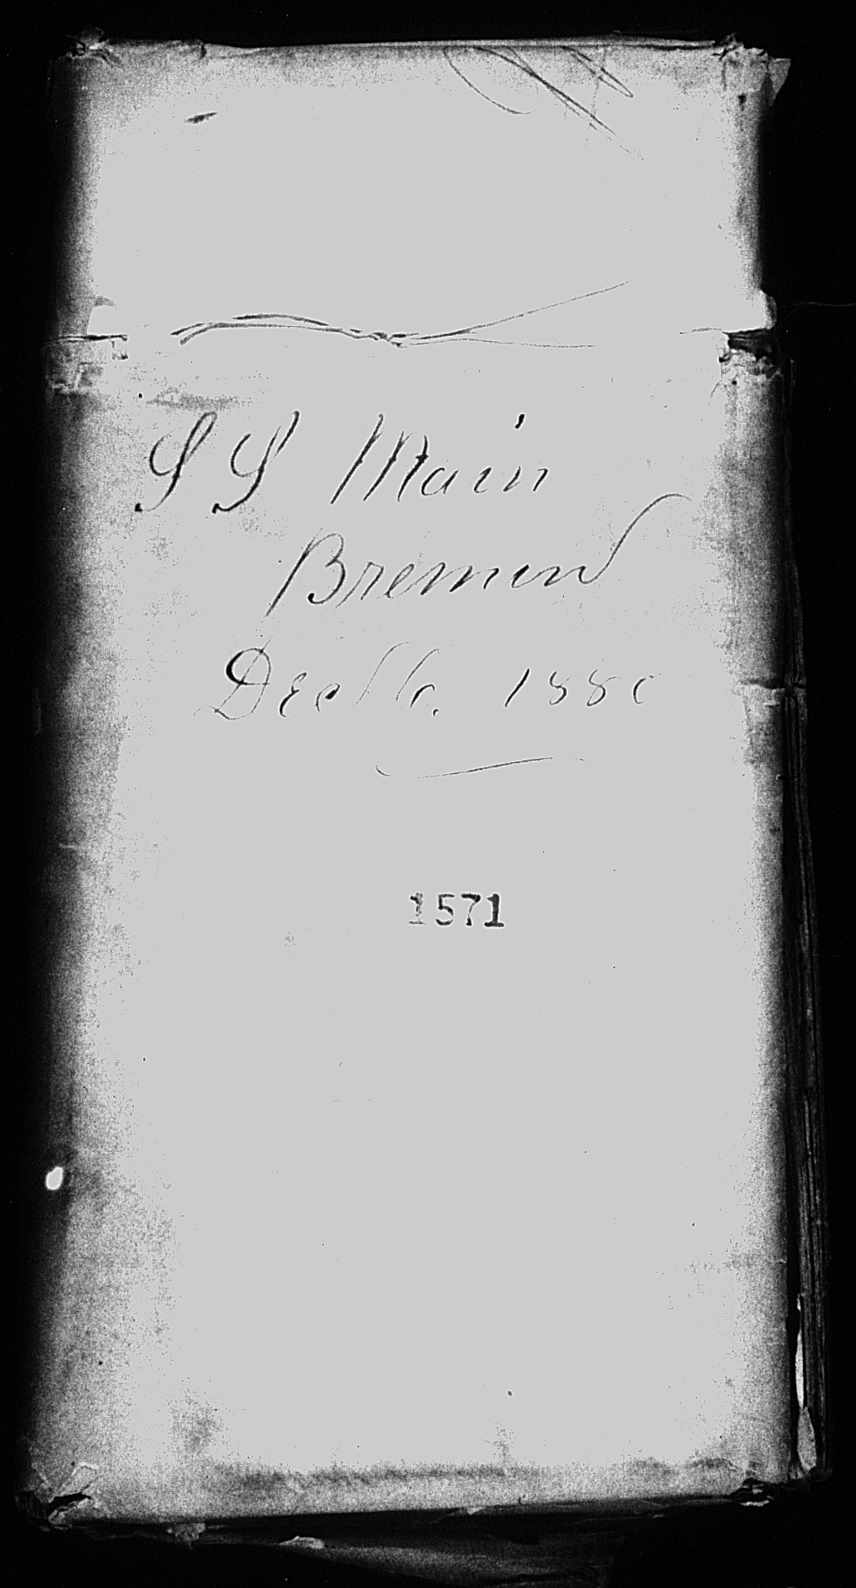 S S Main
Bremen
Dec 16. 1880
1571